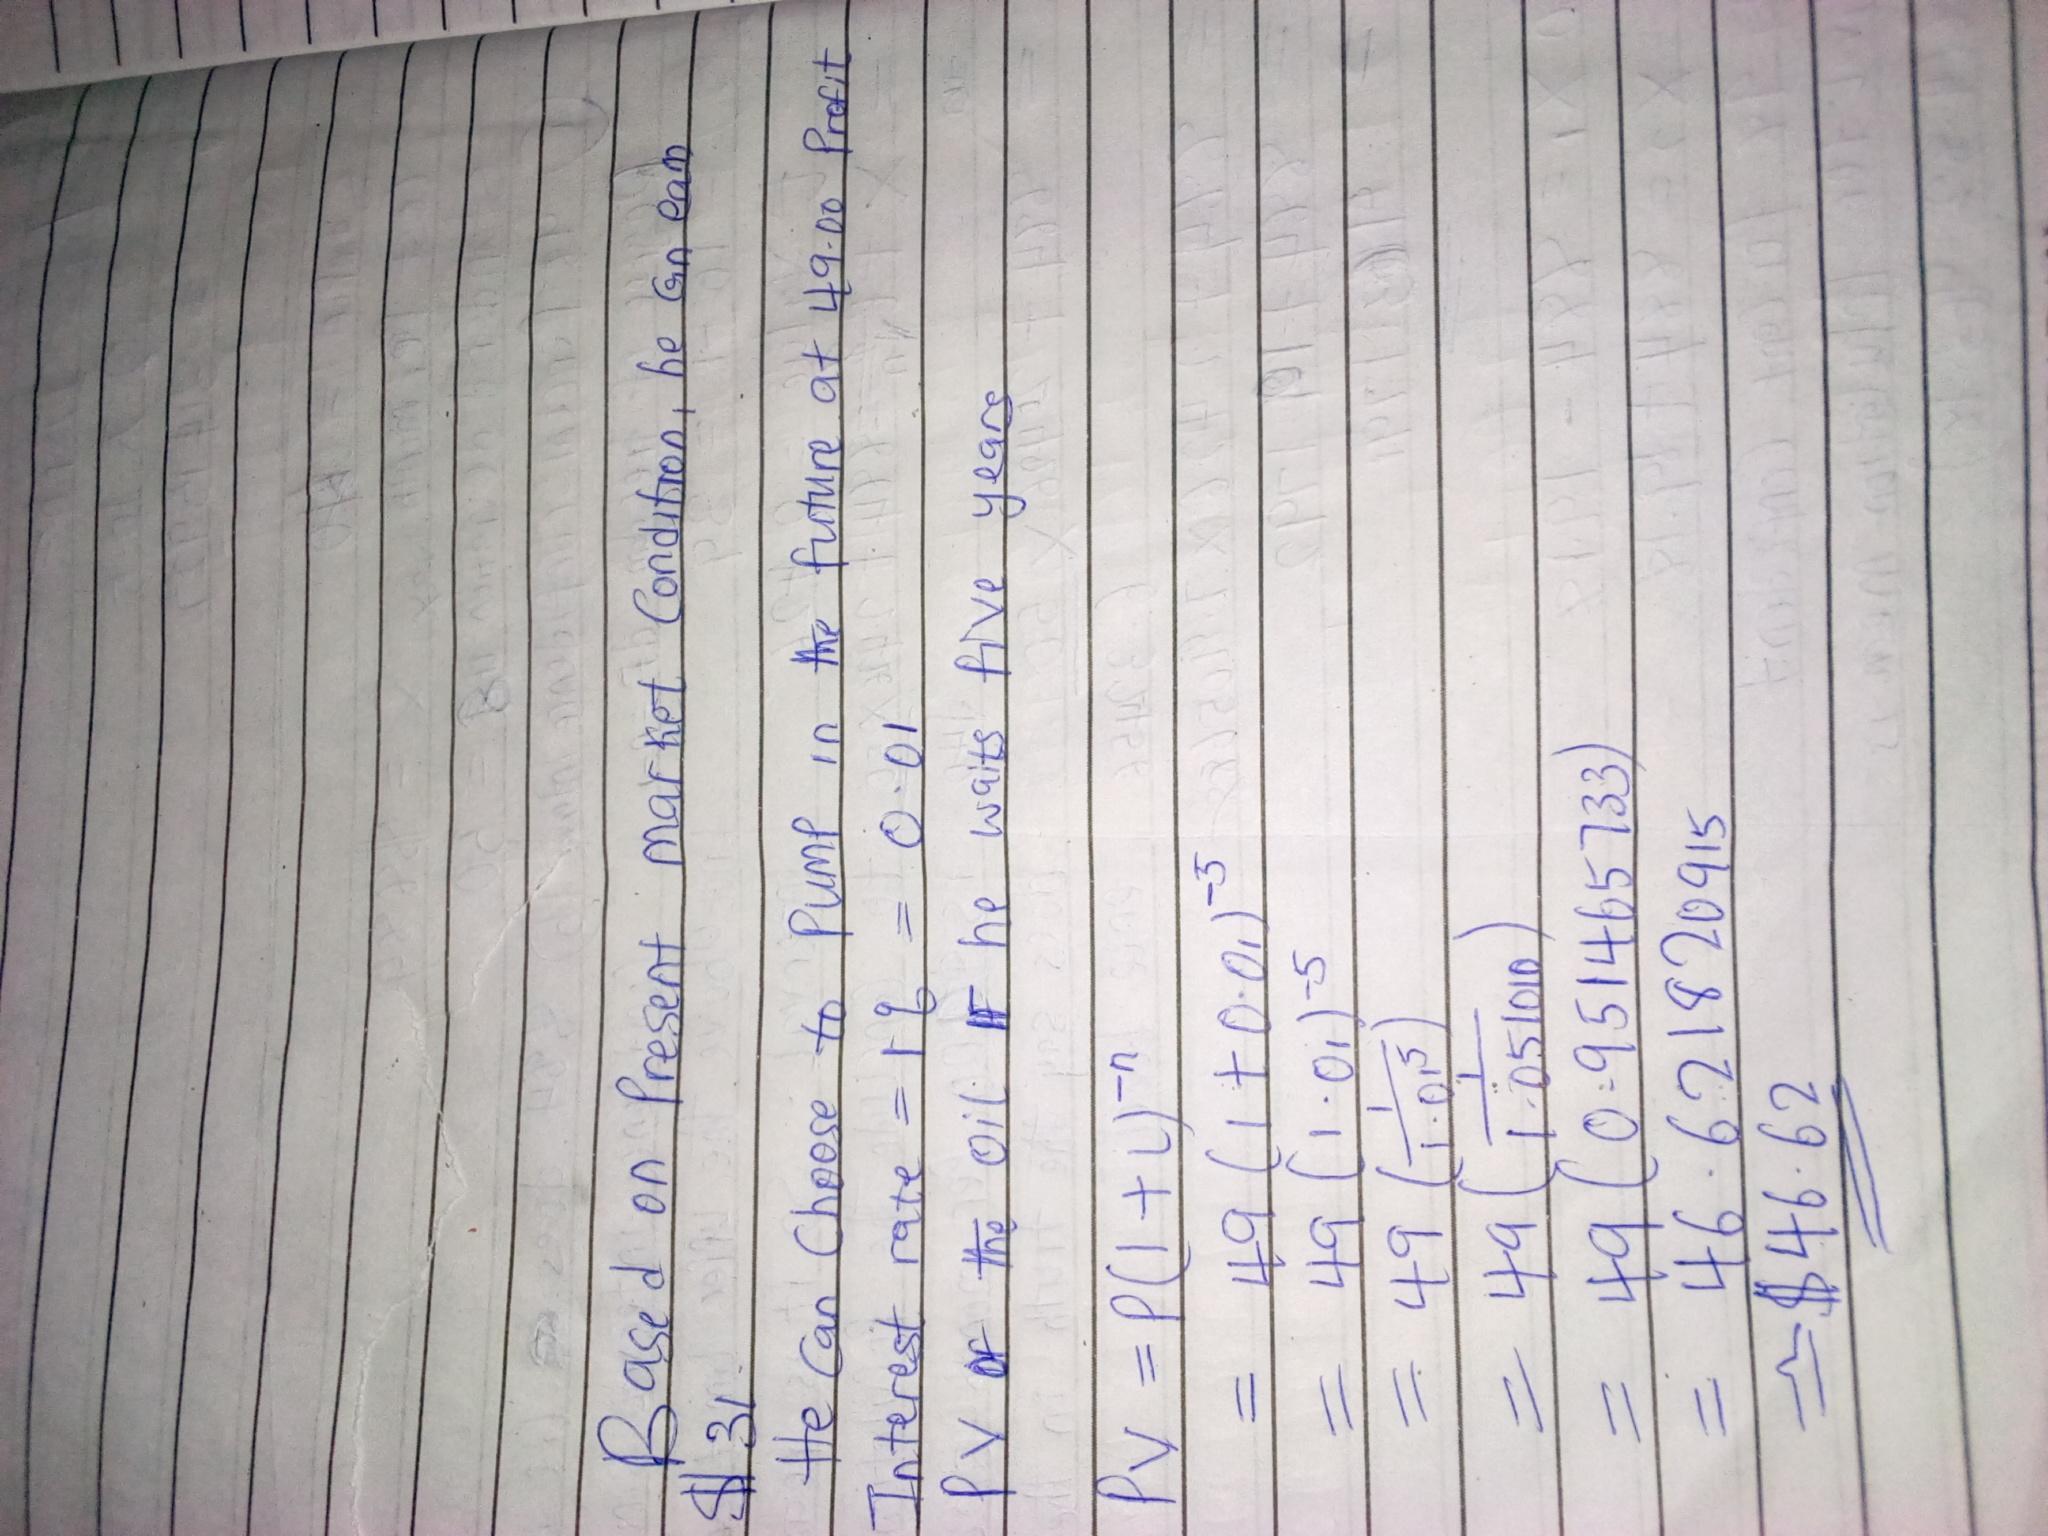 Based on Present market Condition, he can earn
$31.
He Can Choose to Pump in the future at 49.00 Profit
Interest rate = 1% = 0.01
PV of the oil if he waits five years
PV = P(1+i)^-n
= 49(1+0.01)^-5
= 49(1.01)^-5
= 49(1/1.01^5)
= 49(1/1.051010)
= 49(0.951465733)
= 46.621820915
≈ $46.62